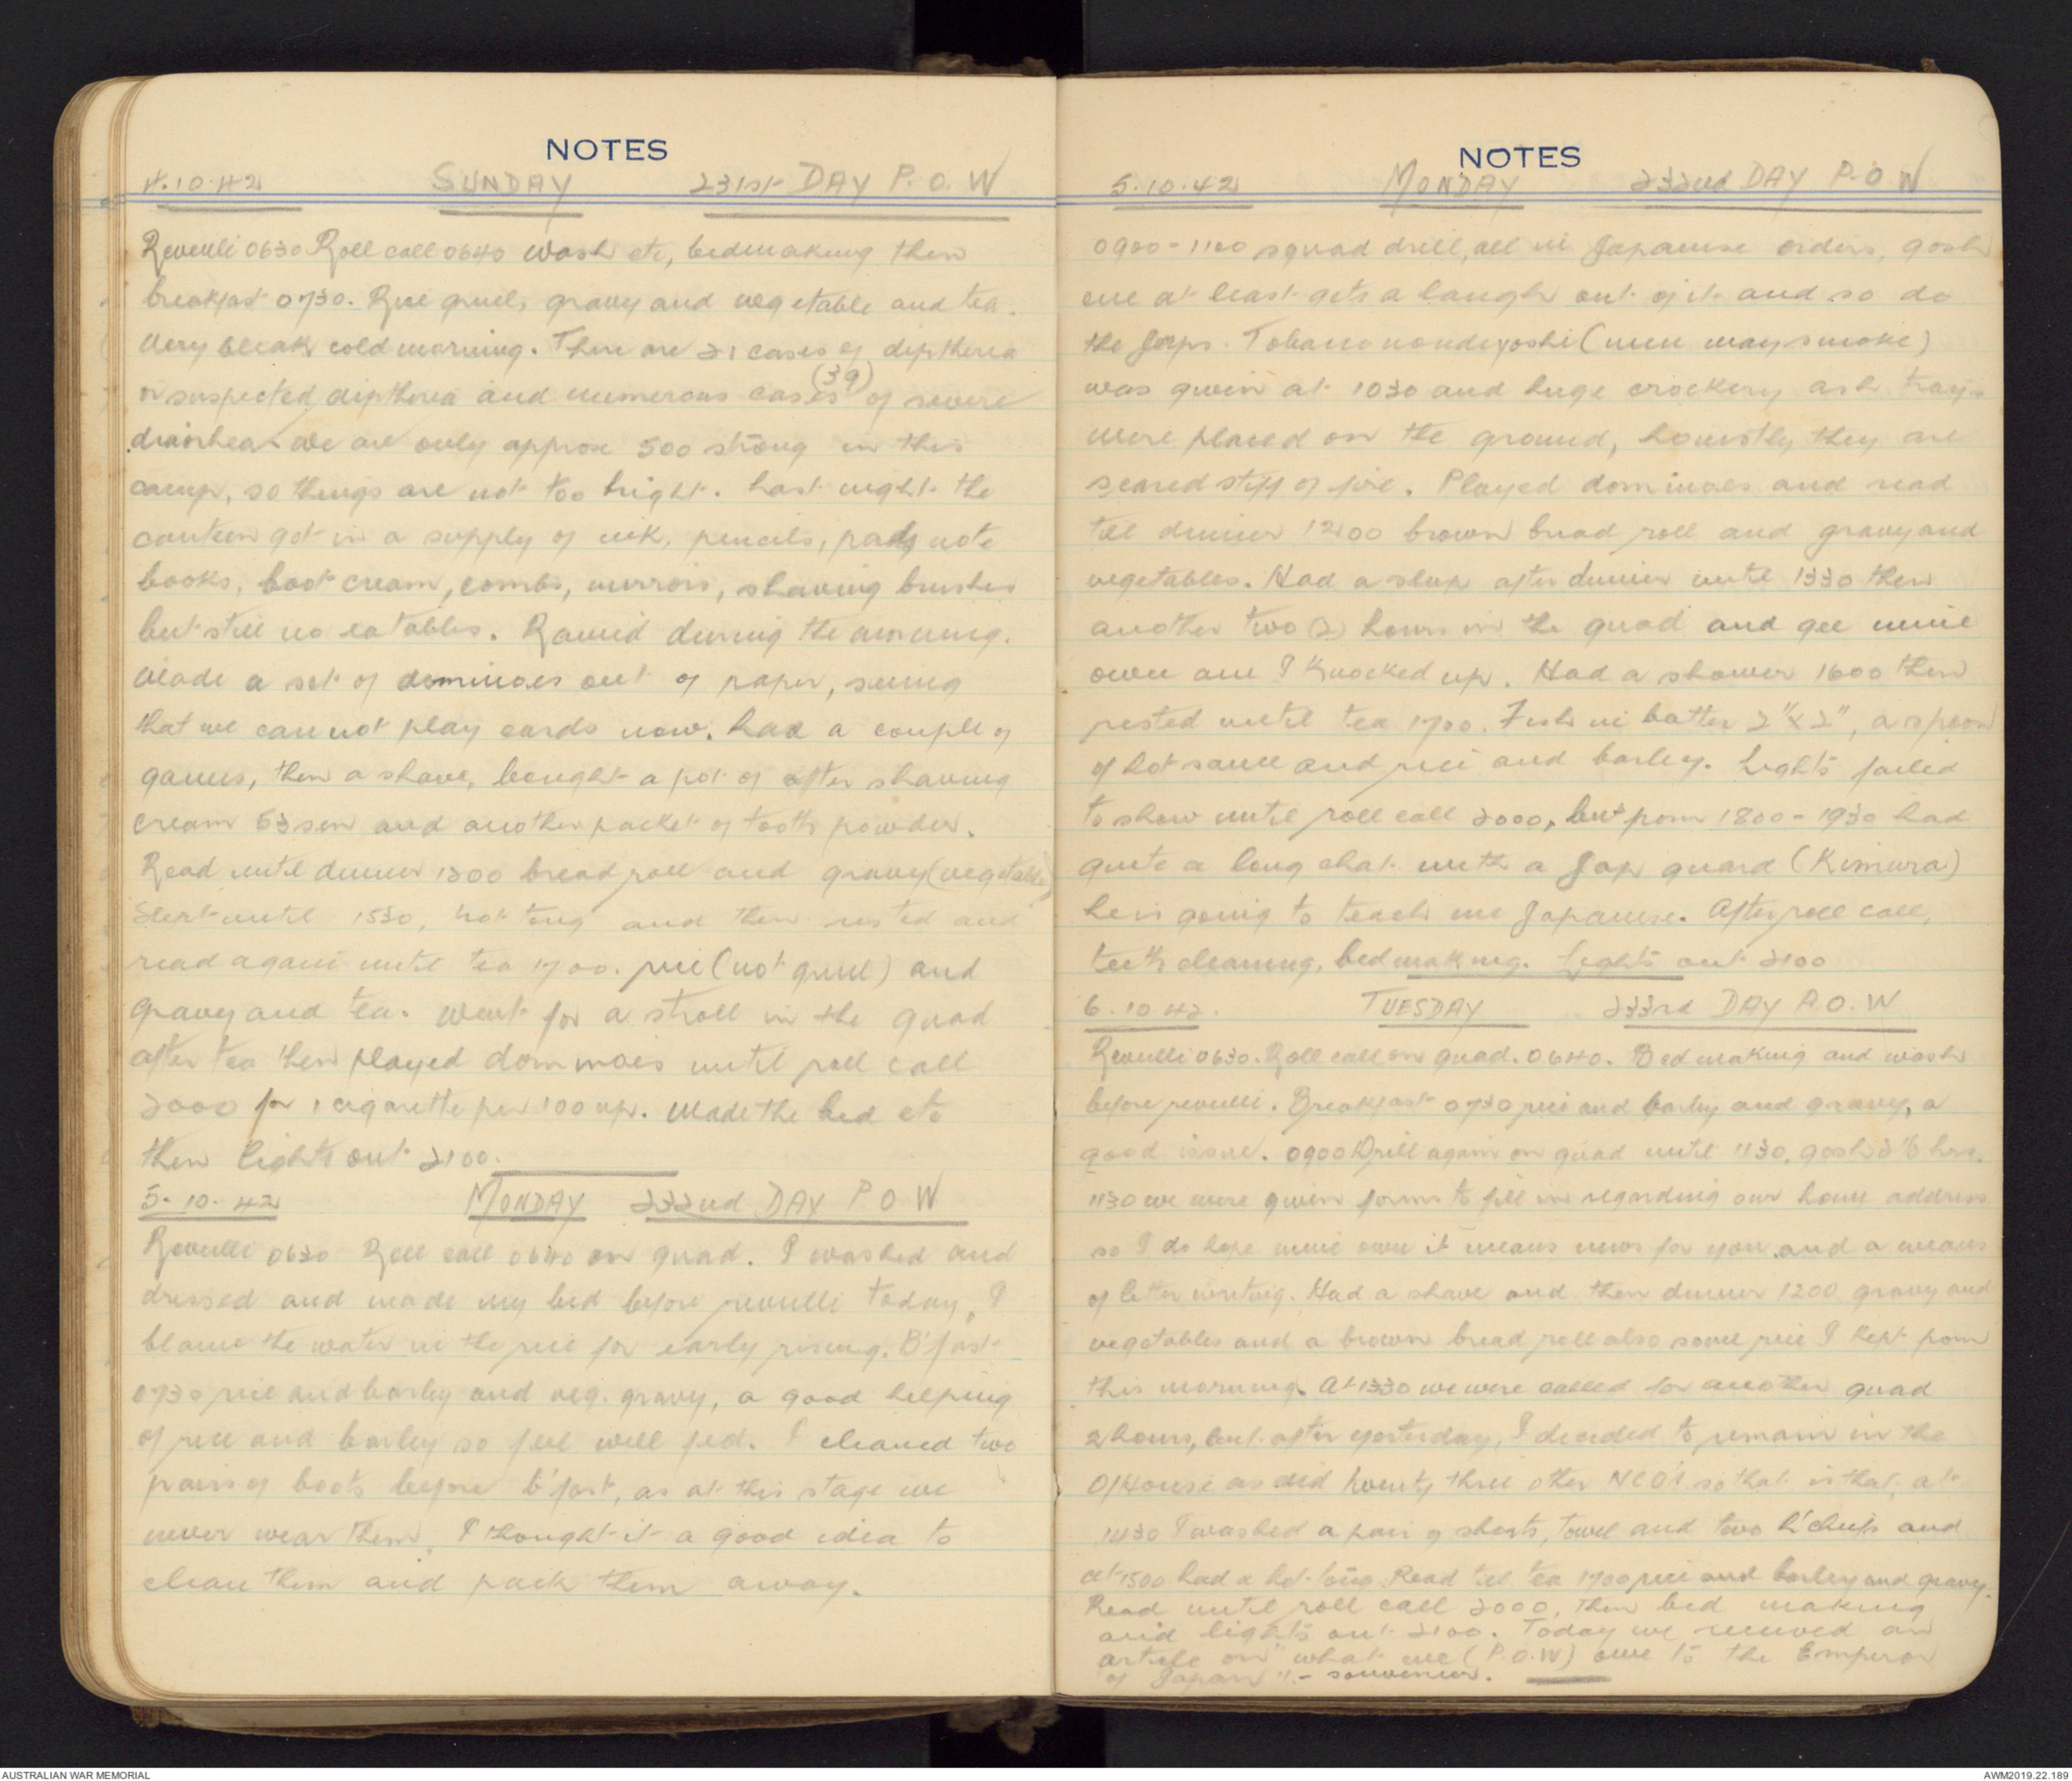 NOTES
4.10.42 SUNDAY 231st DAY P.O.W
Reveulli 0630 Roll call 0640 wash etc, bedmaking then
breakfast 0730. Rice gruel, gravy and vegetable and tea.
Very bleak cold morning. There are 21 cases of diptherea
or suspected diptherea and numerous cases (39) of severe
diarrhea. We are only approx 500 strong in this
camp, so things are not too bright. Last night the
canteen got in a supply of ink, pencils, pads note
books, boot cream, combs, mirrors, shaving brushes
but still no eatables. Rained during the morning.
Made a set of dominoes out of paper, seeing
that we cannot play cards now. Had a couple of
games, then a shave, bought a pot of after shaving
cream 53 sen and another packet of tooth powder.
Read until dinner 1200 bread roll and gravy (vegetable)
Slept until 1530, hot tong and then rested and
read again until tea 1700. rice (not gruel) and
gravy and tea. Went for a stroll in the quad
after tea then played dominoes until roll call
2000 for 1 cigarette per 100 up. Made the bed etc
then lights out 2100.
5.10.42 MONDAY 232nd DAY P O W
Reveulli 0630 Roll call 0640 on quad. I washed and
dressed and made my bed before reveulli today, I
blame the water in the rice for early rising. B'fast
0730 rice and barley and veg. gravy, a good helping
of rice and barley so feel well fed. I cleaned two
pairs of boots before b'fast, as at this stage we
never wear them, I thought it a good idea to
clean them and pack them away.
NOTES
5.10.42 MONDAY 232nd DAY P.O.W
0900-1100 squad drill, all in Japanese orders, gosh
one at least gets a laugh out of it and so do
the Japs. Tobacco nondeyoshi (men may smoke)
was given at 1030 and huge crockery ash trays
were placed on the ground, honestly they are
scared stiff of fire. Played dominoes and read
till dinner 1200 brown bread roll and gravy and
vegetables. Had a sleep after dinner until 1330 then
another two (2) hours in the quad and gee mine
own am I knocked up. Had a shower 1600 then
rested until tea 1700. Fish in batter 2"x2", a spoon
of hot sauce and rice and barley. Lights failed
to show until roll call 2000, but from 1800-1930 had
quite a long chat with a Jap guard (Kimura)
he is going to teach me Japanese. After roll call,
teeth cleaning, bed making. Lights out 2100
6.10.42. TUESDAY 233rd DAY P.O.W
Reveulli 0630. Roll call on quad. 0640. Bed making and wash
before reveulli. Breakfast 0730 rice and barley and gravy, a
good issue. 0900 Drill again on quad until 1130, gosh 2½ hrs.
1130 we were given forms to fill in regarding our home address
so I do hope mine own it means news for you and a means
of letter writing. Had a shave and then dinner 1200 gravy and
vegetables and a brown bread roll also some rice I kept from
this morning. At 1330 we were called for another quad
2 hours, but after yesterday, I decided to remain in the
O/House as did twenty three other NCO's so that is that, at
1430 I washed a pair of shorts, towel and two h'chiefs and
at 1500 had a hot tong. Read till tea 1700 rice and barley and gravy.
Read until roll call 2000, then bed making
and lights out 2100. Today we received an
article on "what we (P.O.W) owe to the Emperor
of Japan" - souvenier.
AUSTRALIAN WAR MEMORIAL
AWM2019.22.189